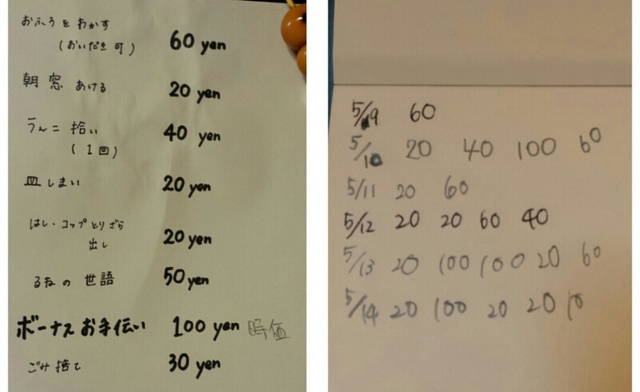 おふろをわかす
(おいだき可) 60 yen
朝 窓 あける 20 yen
うんこ 拾い
(1回) 40 yen
皿 しまい 20 yen
はし・コップとりざら
出し 20 yen
るねの 世語 50 yen
ボーナスお手伝い 100 yen 時価
ごみ捨て 30 yen
5/9 60
5/10 20 40 100 60
5/11 20 60
5/12 20 20 60 40
5/13 20 100 100 20 60
5/14 20 100 20 20 10